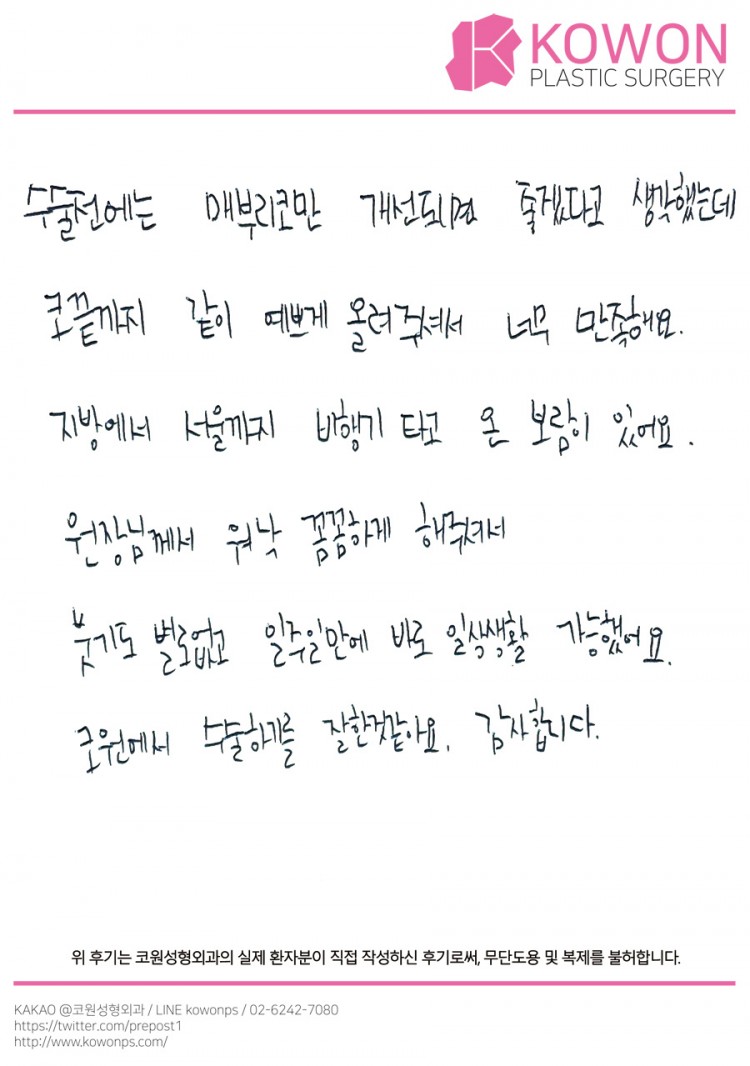 KOWON
PLASTIC SURGERY
수술전에는 매부리코만 개선되면 좋겠다고 생각했는데
코끝까지 같이 예쁘게 올려주셔서 너무 만족해요.
지방에서 서울까지 비행기 타고 온 보람이 있어요.
원장님께서 워낙 꼼꼼하게 해주셔서
붓기도 별로없고 일주일만에 바로 일상생활 가능했어요.
코원에서 수술하기를 잘한것같아요. 감사합니다.
위 후기는 코원성형외과의 실제 환자분이 직접 작성하신 후기로써, 무단도용 및 복제를 불허합니다.
KAKAO @코원성형외과 / LINE kowonps / 02-6242-7080
https://twitter.com/prepost1
http://www.kowonps.com/